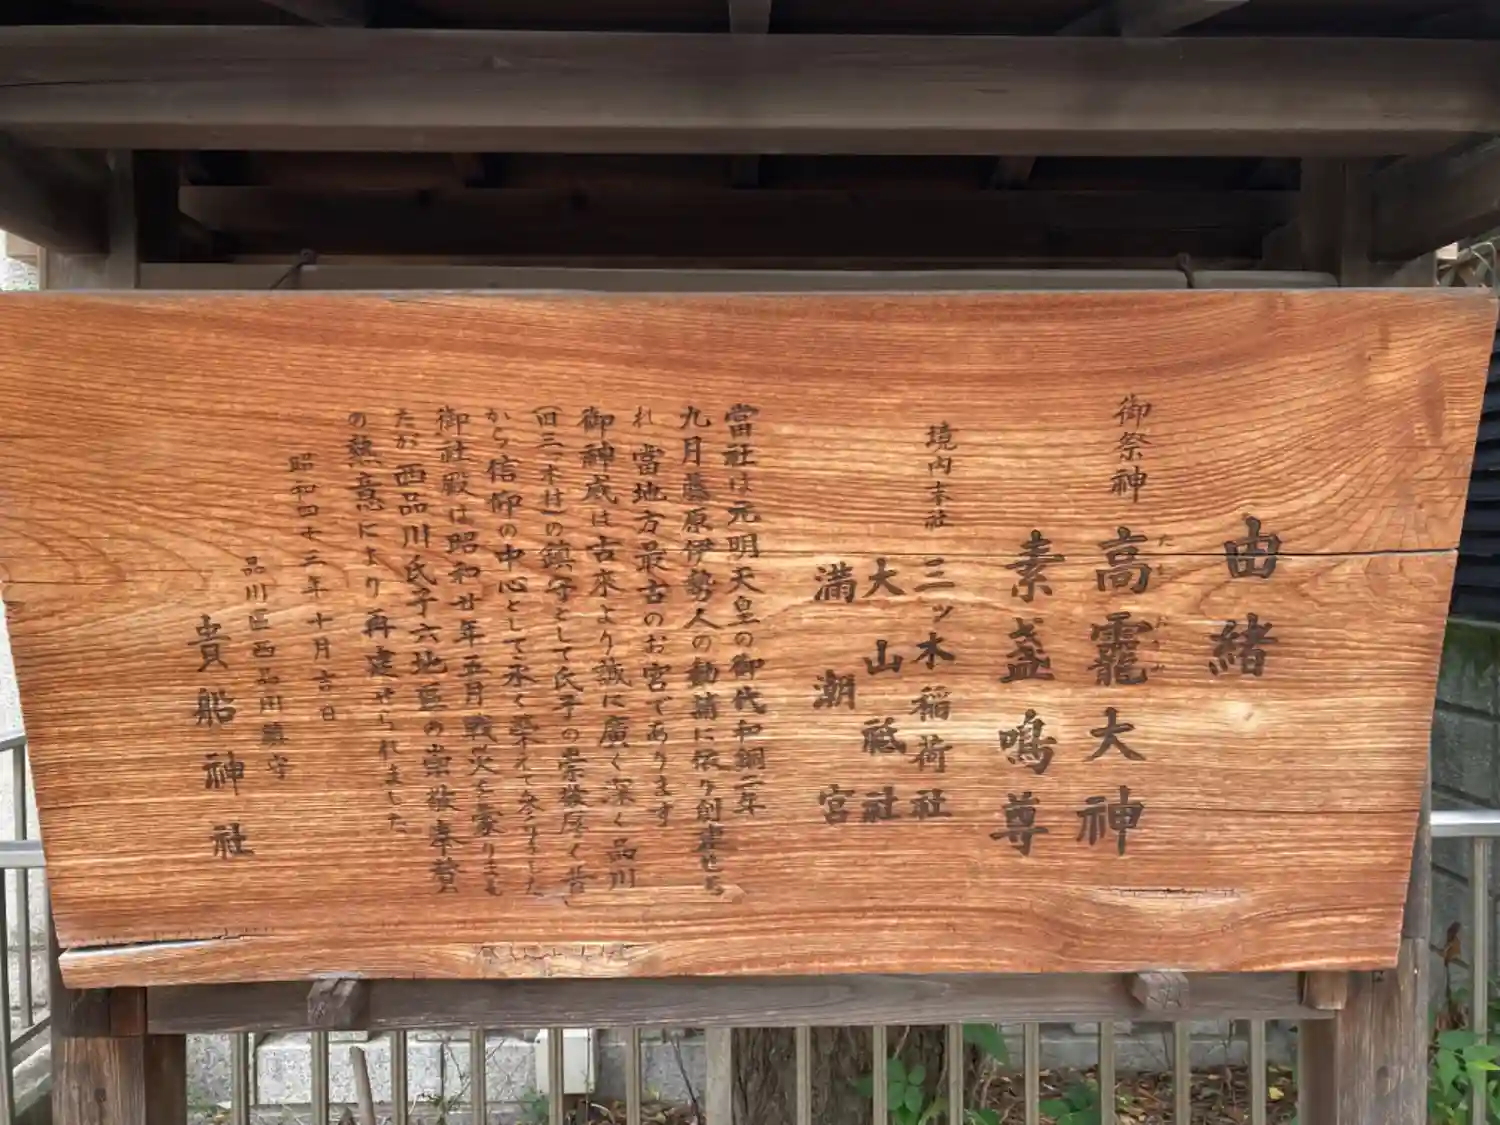 由緒
御祭神 高龗大神
たか おかみ
素盞嗚尊
境内末社 三ッ木稲荷社
大山祗社
満潮宮
當社は元明天皇の御代和銅二年
九月藤原伊勢人の勧請に依り創建せら
れ 當地方最古のお宮であります
御神威は古来より誠に廣く深く品川
(旧三ッ木村)の鎮守として氏子の崇敬厚く昔
から信仰の中心として永く栄えて参りました
御社殿は昭和廿年五月戦災を蒙りまし
たが西品川氏子六地区の崇敬奉賛
の熱意により再建せられました
昭和四十三年十月吉日
品川区西品川鎮守
貴船神社